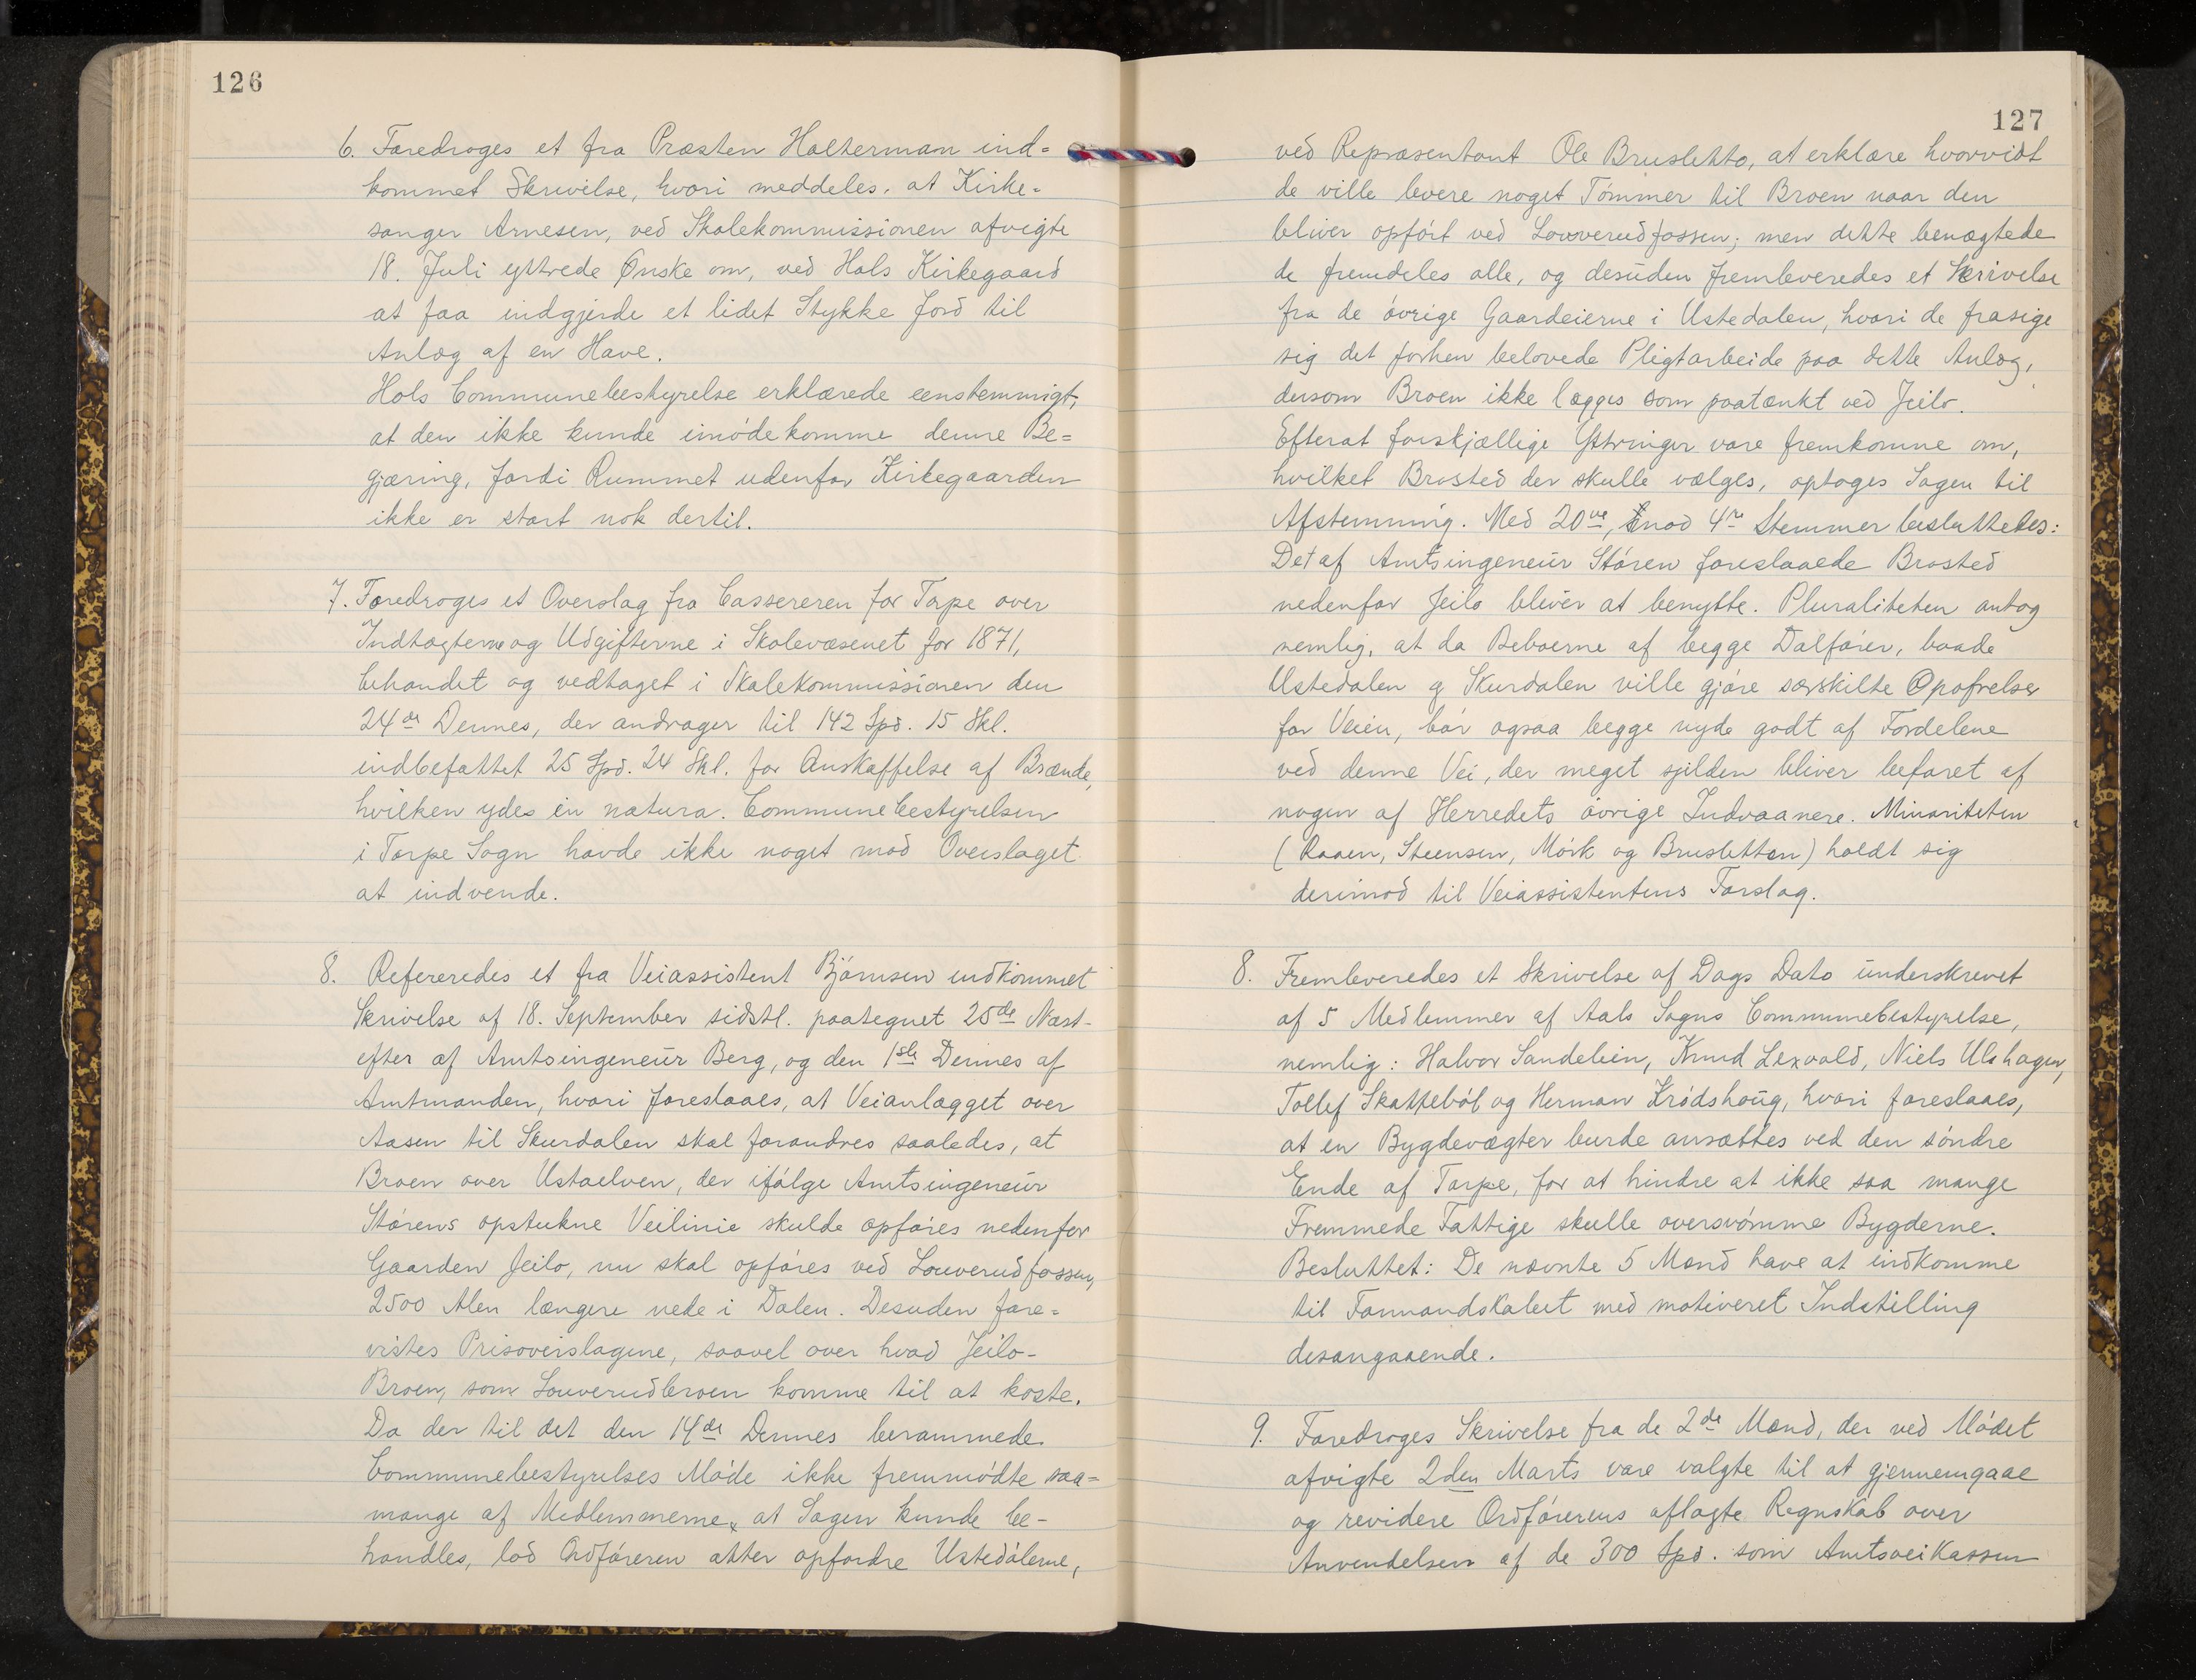 126
6. Foredroges et fra Præsten Halterman ind=
kommet Skrivelse, hvori meddeles, at Kirke=
sanger Arnesen, ved Skolekommissionen afvigte
18. Juli yttrede Ønske om, ved Hols Kirkegaard
at faa indgjerde et lidet Stykke Jord til
Anlæg af en Have.
Hols Communebestyrelse erklærede eenstemmigt,
at den ikke kunde imødekomme denne Be=
gjæring, fordi Rummet udenfor Kirkegaarden
ikke er stort nok dertil.
7. Foredroges et Overslag fra Cassereren for Torpe over
Indtægterne og Udgifterne i Skolevæsenet for 1871,
behandlet og vedtaget i Skolekommissionen den
24de Dennes, der andrager til 142 Spd. 15 Skl.
indbefattet 25 Spd. 24 Skl. for Anskaffelse af Brænde,
hvilken ydes in natura. Communebestyrelsen
i Torpe Sogn havde ikke noget mod Overslaget
at indvende.
8. Refereredes et fra Veiassistent Bjørnsen indkommet
Skrivelse af 18. September sidstl. paategnet 25de Næst-
efter af Amtsingeneur Berg, og den 1ste Dennes af
Amtmanden, hvori foreslaaes, at Veianlægget over
Aasen til Skurdalen skal forandres saaledes, at
Broen over Ustaelven, der ifølge Amtsingeneur
Størens opstukne Veilinie skulde opføres nedenfor
Gaarden Jeilo, nu skal opføres ved Louverudfossen,
2500 Alen længere nede i Dalen. Desuden fore=
vistes Prisoverslagene, saavel over hvad Jeilo-
Broen, som Louverudbroen komme til at koste.
Da der til det den 14de Dennes berammede
Communebestyrelses Møde ikke fremmødte saa=
mange af Medlemmerne, at Sagen kunde be-
handles, lod Ordføreren atter opfordre Ustedølerne,
127
ved Repræsentant Ole Brusletto, at erklære hvorvidt
de ville levere noget Tømmer til Broen naar den
bliver opført ved Louverudfossen; men dette benægtede
de fremdeles alle, og desuden fremleveredes et Skrivelse
fra de øvrige Gaardeierne i Ustedalen, hvori de frasige
sig det forhen belovede Pligtarbeide paa dette Anlæg,
dersom Broen ikke lægges som paatænkt ved Jeilo.
Efterat forskjællige Yttringer vare fremkomne om,
hvilket Brosted der skulle vælges, optoges Sagen til
Afstemming. Med 20ve, mod 4re Stemmer besluttedes:
Det af Amtsingeneur Støren foreslaaede Brosted
nedenfor Jeilo bliver at benytte. Pluraliteten antog
nemlig, at da Beboerne af begge Dalfører, baade
Ustedalen og Skurdalen ville gjøre særskilte Opofrelser
for Veien, bør ogsaa begge nyde godt af Fordelene
ved denne Vei, der meget sjelden bliver befaret af
nogen af Herredets øvrige Indvaanere. Minoriteten
(Raaen, Steensen, Mørk og Brusletten) holdt sig
derimod til Veiassistentens Forslag.
8. Fremleveredes et Skrivelse af Dags Dato underskrevet
af 5 Medlemmer af Aals Sogns Communebestyrelse,
nemlig: Halvor Sandebein, Knud Lexvold, Niels Ulshagen,
Tollef Skattebøl og Herman Krødshoug, hvori foreslaaes,
at en Bygdevægter burde ansættes ved den søndre
Ende af Torpe, for at hindre at ikke saa mange
Fremmede Fattige skulle oversvømme Bygderne.
Besluttet: De nævnte 5 Mænd have at indkomme
til Formandskabet med motiveret Indstilling
desangaaende.
9. Foredroges Skrivelse fra de 2de Mænd, der ved Mødet
afvigte 2den Marts vare valgte til at gjennemgaae
og revidere Ordførerens aflagte Regnskab over
Anvendelsen af de 300 Spd. som Amtsveikassen